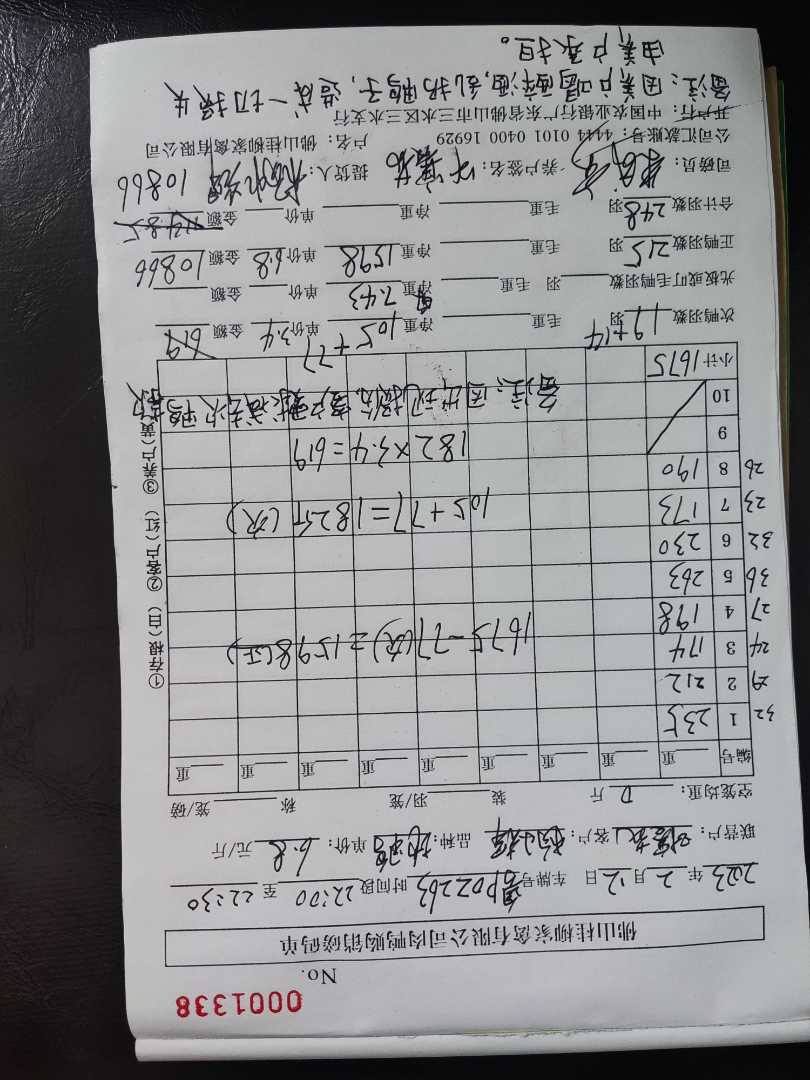 No. 0001338
佛山桂柳家禽有限公司肉鸭购销磅码单
2023年 2月 12日 车牌号 粤P02263 时间段 22:00 至 22:30
联营户: 客户: 品种: 单价: 6.8 元/斤
空笼均重: D 斤 装 羽/笼 称 笼/磅
编号 重 重 重 重 重 重 重 重
32 1 235
29 2 212
24 3 174 1675-77(次)=1598(正)
27 4 198
36 5 263
32 6 230
23 7 173 105+77=182斤(次)
26 8 190 182×3.4=619
9
10 备注:因出现 客户要求 次鸭
小计 1675
①存根(白) ②客户(红) ③养户(黄)
次鸭羽数 19+14 羽 毛重 净重 105+77 单价 3.4 金额 619
光板或叮毛鸭羽数 羽 毛重 净重 7.43 单价 金额
正鸭羽数 215 羽 毛重 净重 1598 单价 6.8 金额 10866
合计羽数 248 羽 毛重 净重 单价 金额
司磅员: 养户签名: 提货人: 10866
公司汇款账号: 4444 0101 0400 16929 户名: 佛山桂柳家禽有限公司
开户行: 中国农业银行广东省佛山市三水区三水支行
备注:因养户喝醉酒,乱扔鸭子,造成一切损失
由养户承担。